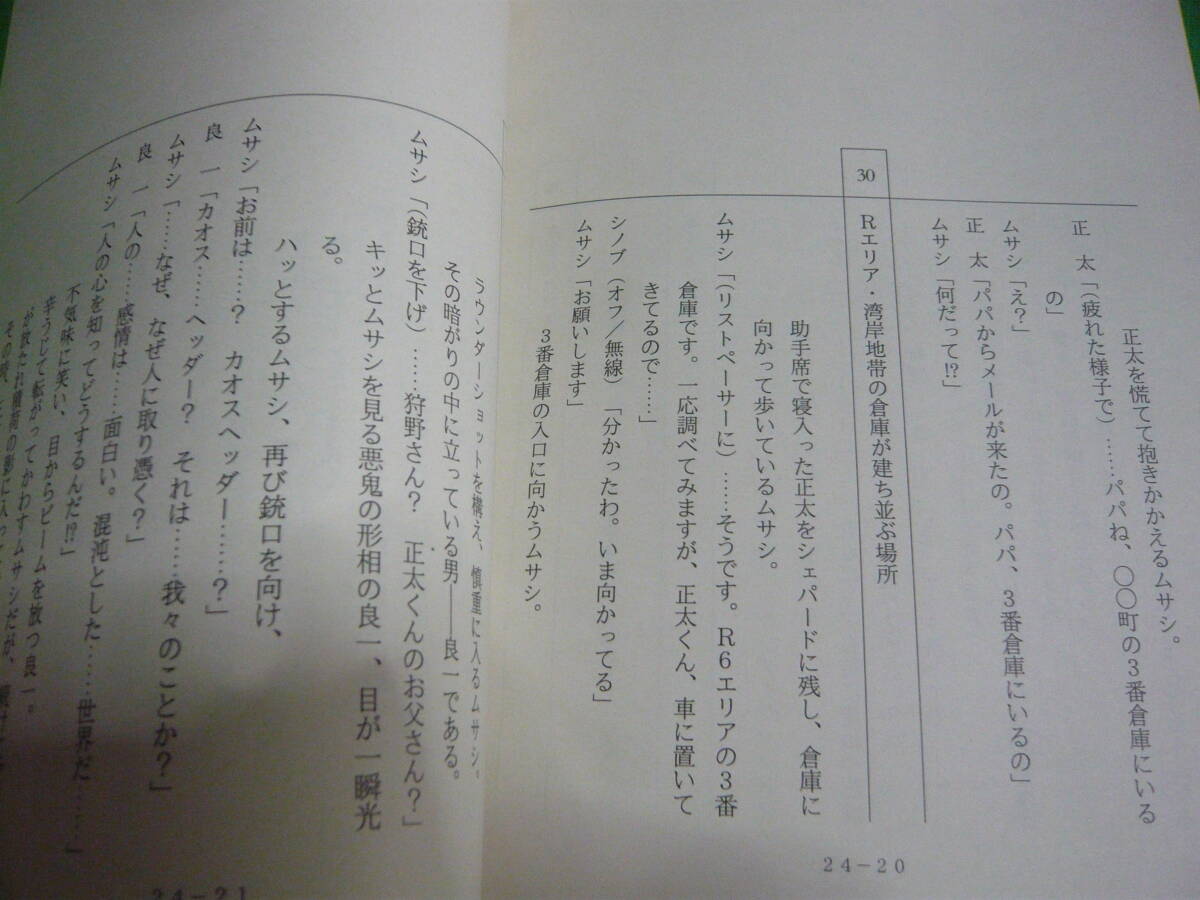 正太を慌てて抱きかかえるムサシ。
正　太「（疲れた様子で）……パパね、〇〇町の３番倉庫にいる
の」
ムサシ「え？」
正　太「パパからメールが来たの。パパ、３番倉庫にいるの」
ムサシ「何だって!?」
30　Ｒエリア・湾岸地帯の倉庫が建ち並ぶ場所
助手席で寝入った正太をシェパードに残し、倉庫に
向かって歩いているムサシ。
ムサシ「（リストペーサーに）……そうです。Ｒ６エリアの３番
倉庫です。一応調べてみますが、正太くん、車に置いて
きてるので……」
シノブ（オフ／無線）「分かったわ。いま向かってる」
ムサシ「お願いします」
３番倉庫の入口に向かうムサシ。
24－20
ラウンダーショットを構え、慎重に入るムサシ。
その暗がりの中に立っている男――良一である。
ムサシ「（銃口を下げ）……狩野さん？　正太くんのお父さん？」
キッとムサシを見る悪鬼の形相の良一、目が一瞬光
る。
ハッとするムサシ、再び銃口を向け、
ムサシ「お前は……？　カオスヘッダー……？」
良　一「カオス……ヘッダー？　それは……我々のことか？」
ムサシ「……なぜ、なぜ人に取り憑く？」
良　一「人の……感情は……面白い。混沌とした……世界だ……」
ムサシ「人の心を知ってどうするんだ!?」
不気味に笑い、目からビームを放つ良一。
辛うじて転がってかわすムサシだが、
24－21